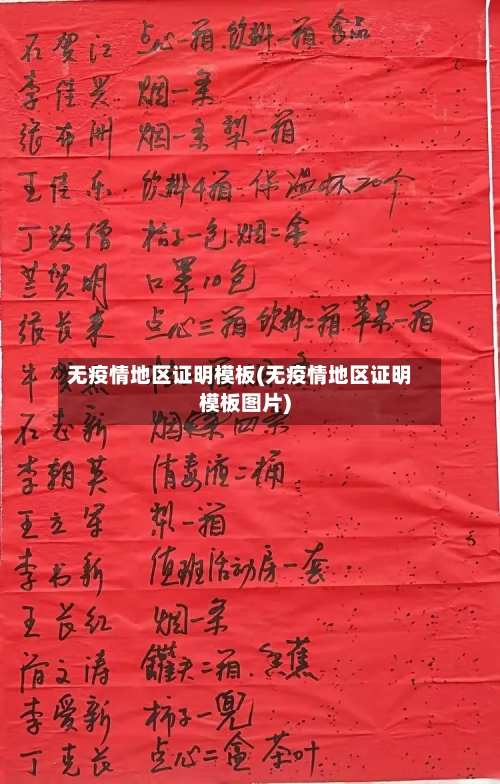 石贺江 点心一箱.饮料一箱.食品
李佳兴 烟一条
张布洲 烟一条 梨一箱
王佳乐 饮料4箱.保温杯20个
丁路僧 桔子一包.烟二盒
贺明 口罩10包
张长来 点心三箱 饮料二箱.苹果一箱
牛
无疫情地区证明模板(无疫情地区证明
模板图片)
石志新 烟 四条
李朝英 消毒液二桶
王立军 梨一箱
李书新 值班活动房一套
王长红 烟一条
文涛 罐头二箱.香蕉
李爱新 柿子一兜
丁克长 点心二盒 茶叶